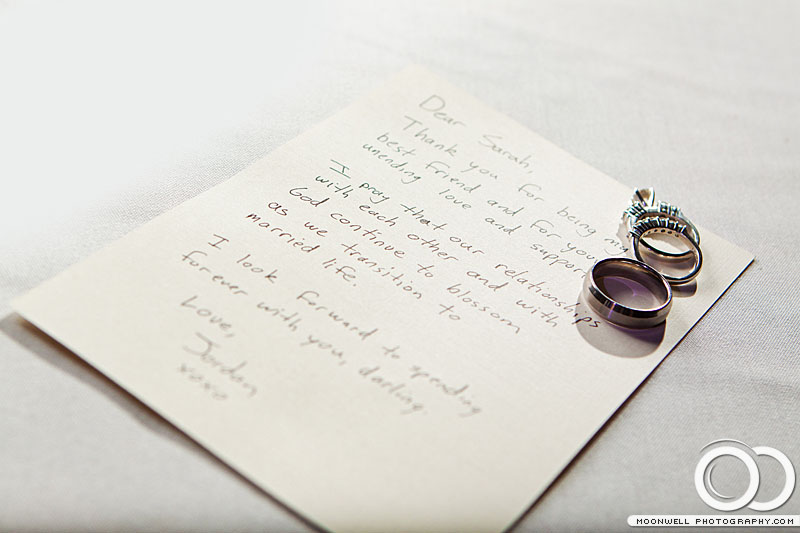 Dear Sarah,
Thank you for being my
best friend and for your
unending love and support.
I pray that our relationships
with each other and with
God continue to blossom
as we transition to
married life.
I look forward to spending
forever with you, darling.
Love,
Jordan
xoxo
MOONWELL PHOTOGRAPHY.COM